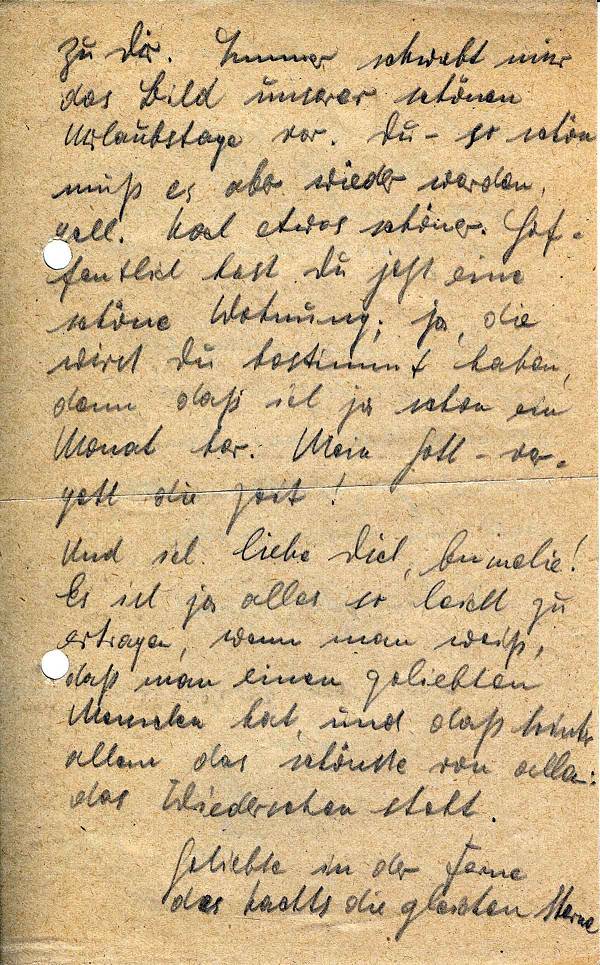 zu Dir. Immer schwebt mir
das Bild unserer schönen
Urlaubstage vor. Du - so schön
muß es aber wieder werden,
gell. Noch etwas schöner. Hof-
fentlich hast Du jetzt eine
schöne Wohnung; ja, die
wirst Du bestimmt haben,
denn daß ist ja schon ein
Monat her. Mein Gott - ver-
geht die Zeit!
Und ich liebe Dich, Annelie!
Es ist ja alles so leicht zu
ertragen, wenn man weiß,
daß man einen geliebten
Menschen hat, und daß hinter
allem das schönste von allen:
das Wiedersehen steht.
Geliebte in der Ferne
des Nachts die gleichen Sterne